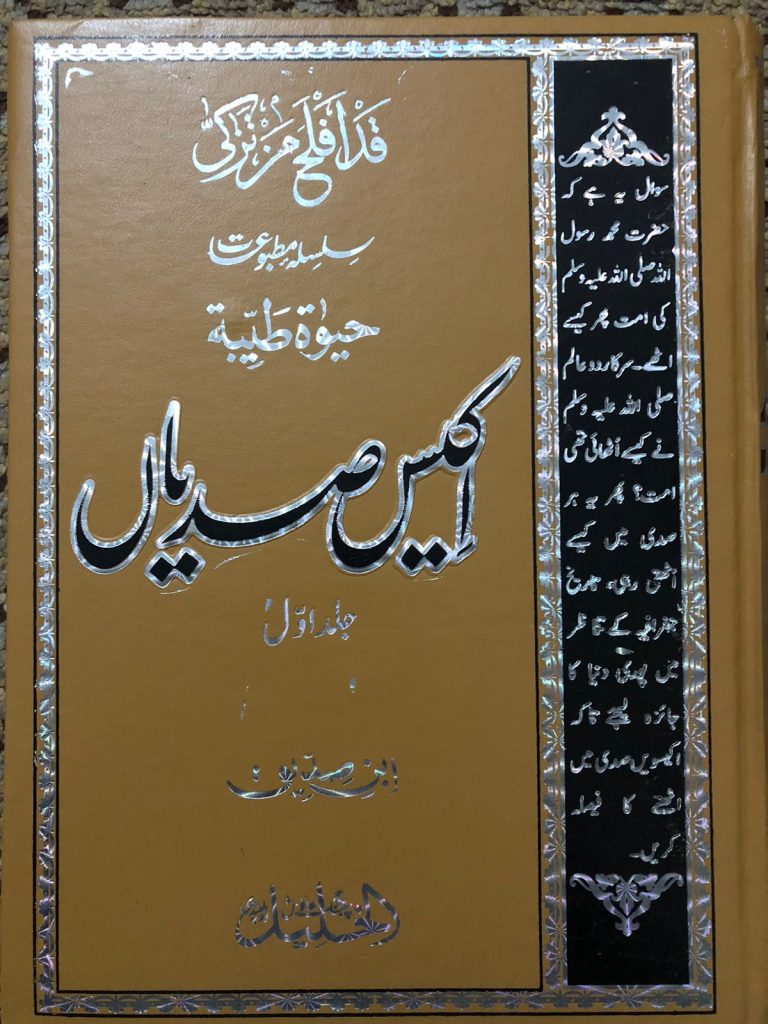 قد افلح من تزكىّٰ
سلسلہ مطبوعت
حیوٰۃ طیّبۃ
اکیس صدیاں
جلد اوّل
ابن صدیق
الخلیل
سوال یہ ہے کہ
حضرت محمد رسول
اللہ صلی اللہ علیہ وسلم
کی امت پھر کیسے
اٹھے۔ سرکار دو عالم
صلی اللہ علیہ وسلم
نے کیسے اُٹھائی تھی
امت؟ پھر یہ ہر
صدی میں کیسے
اٹھتی رہی، تاریخ
جغرافیہ کے تناظر
میں پوری دنیا کا
جائزہ لیجئے تاکہ
اکیسویں صدی میں
اٹھنے کا فیصلہ
کریں۔